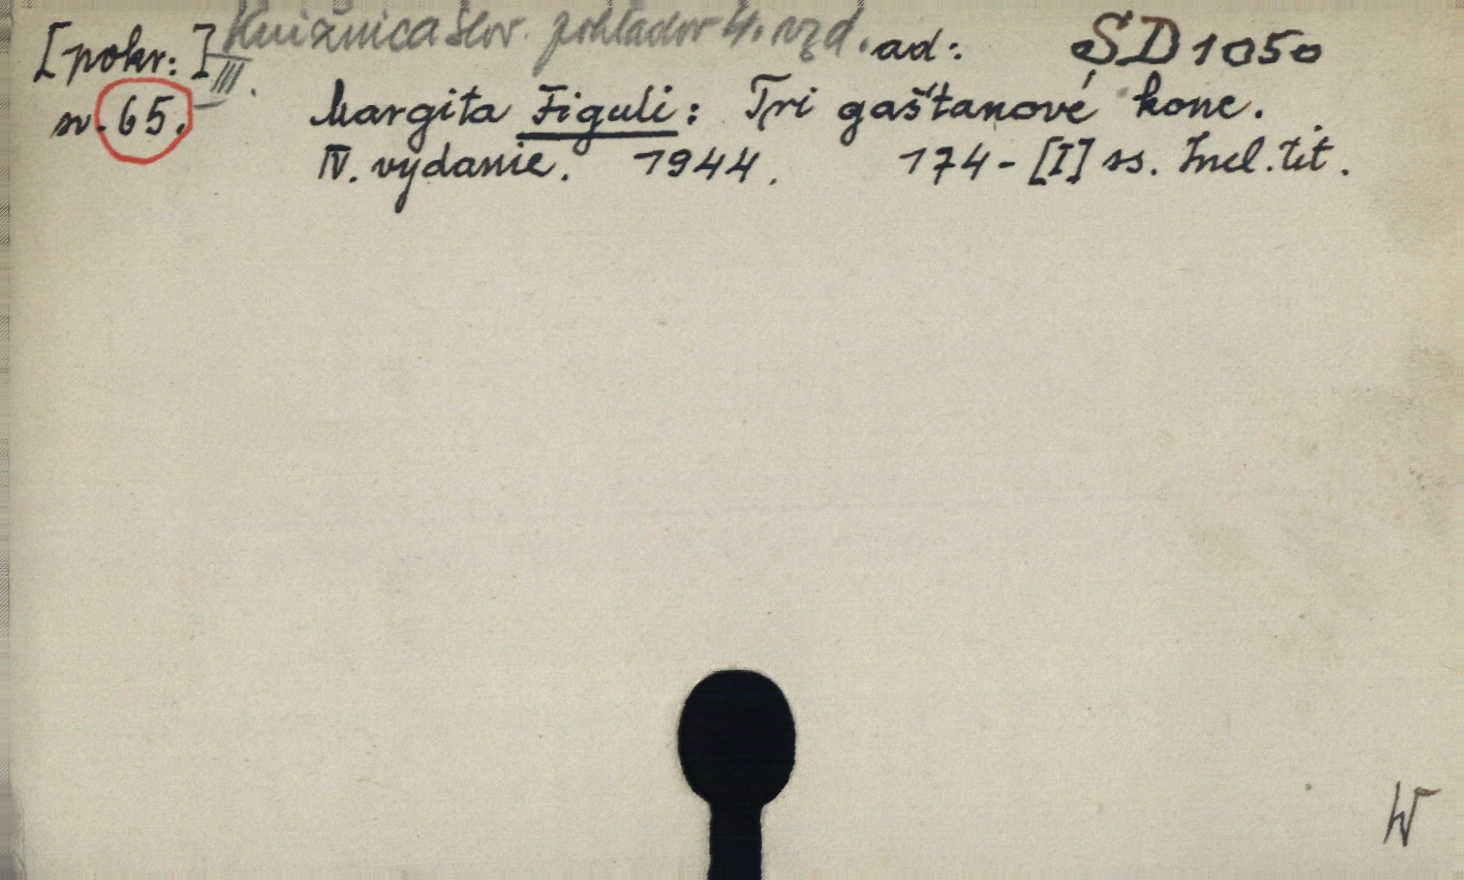 [pokr:] III. Knižnica slov. pokladov 4. vyd. ad: SD 1050
sv. 65. Margita Figuli: Tri gaštanové kone.
IV. vydanie. 1944. 174-[I] ss. Incl. tit.
W